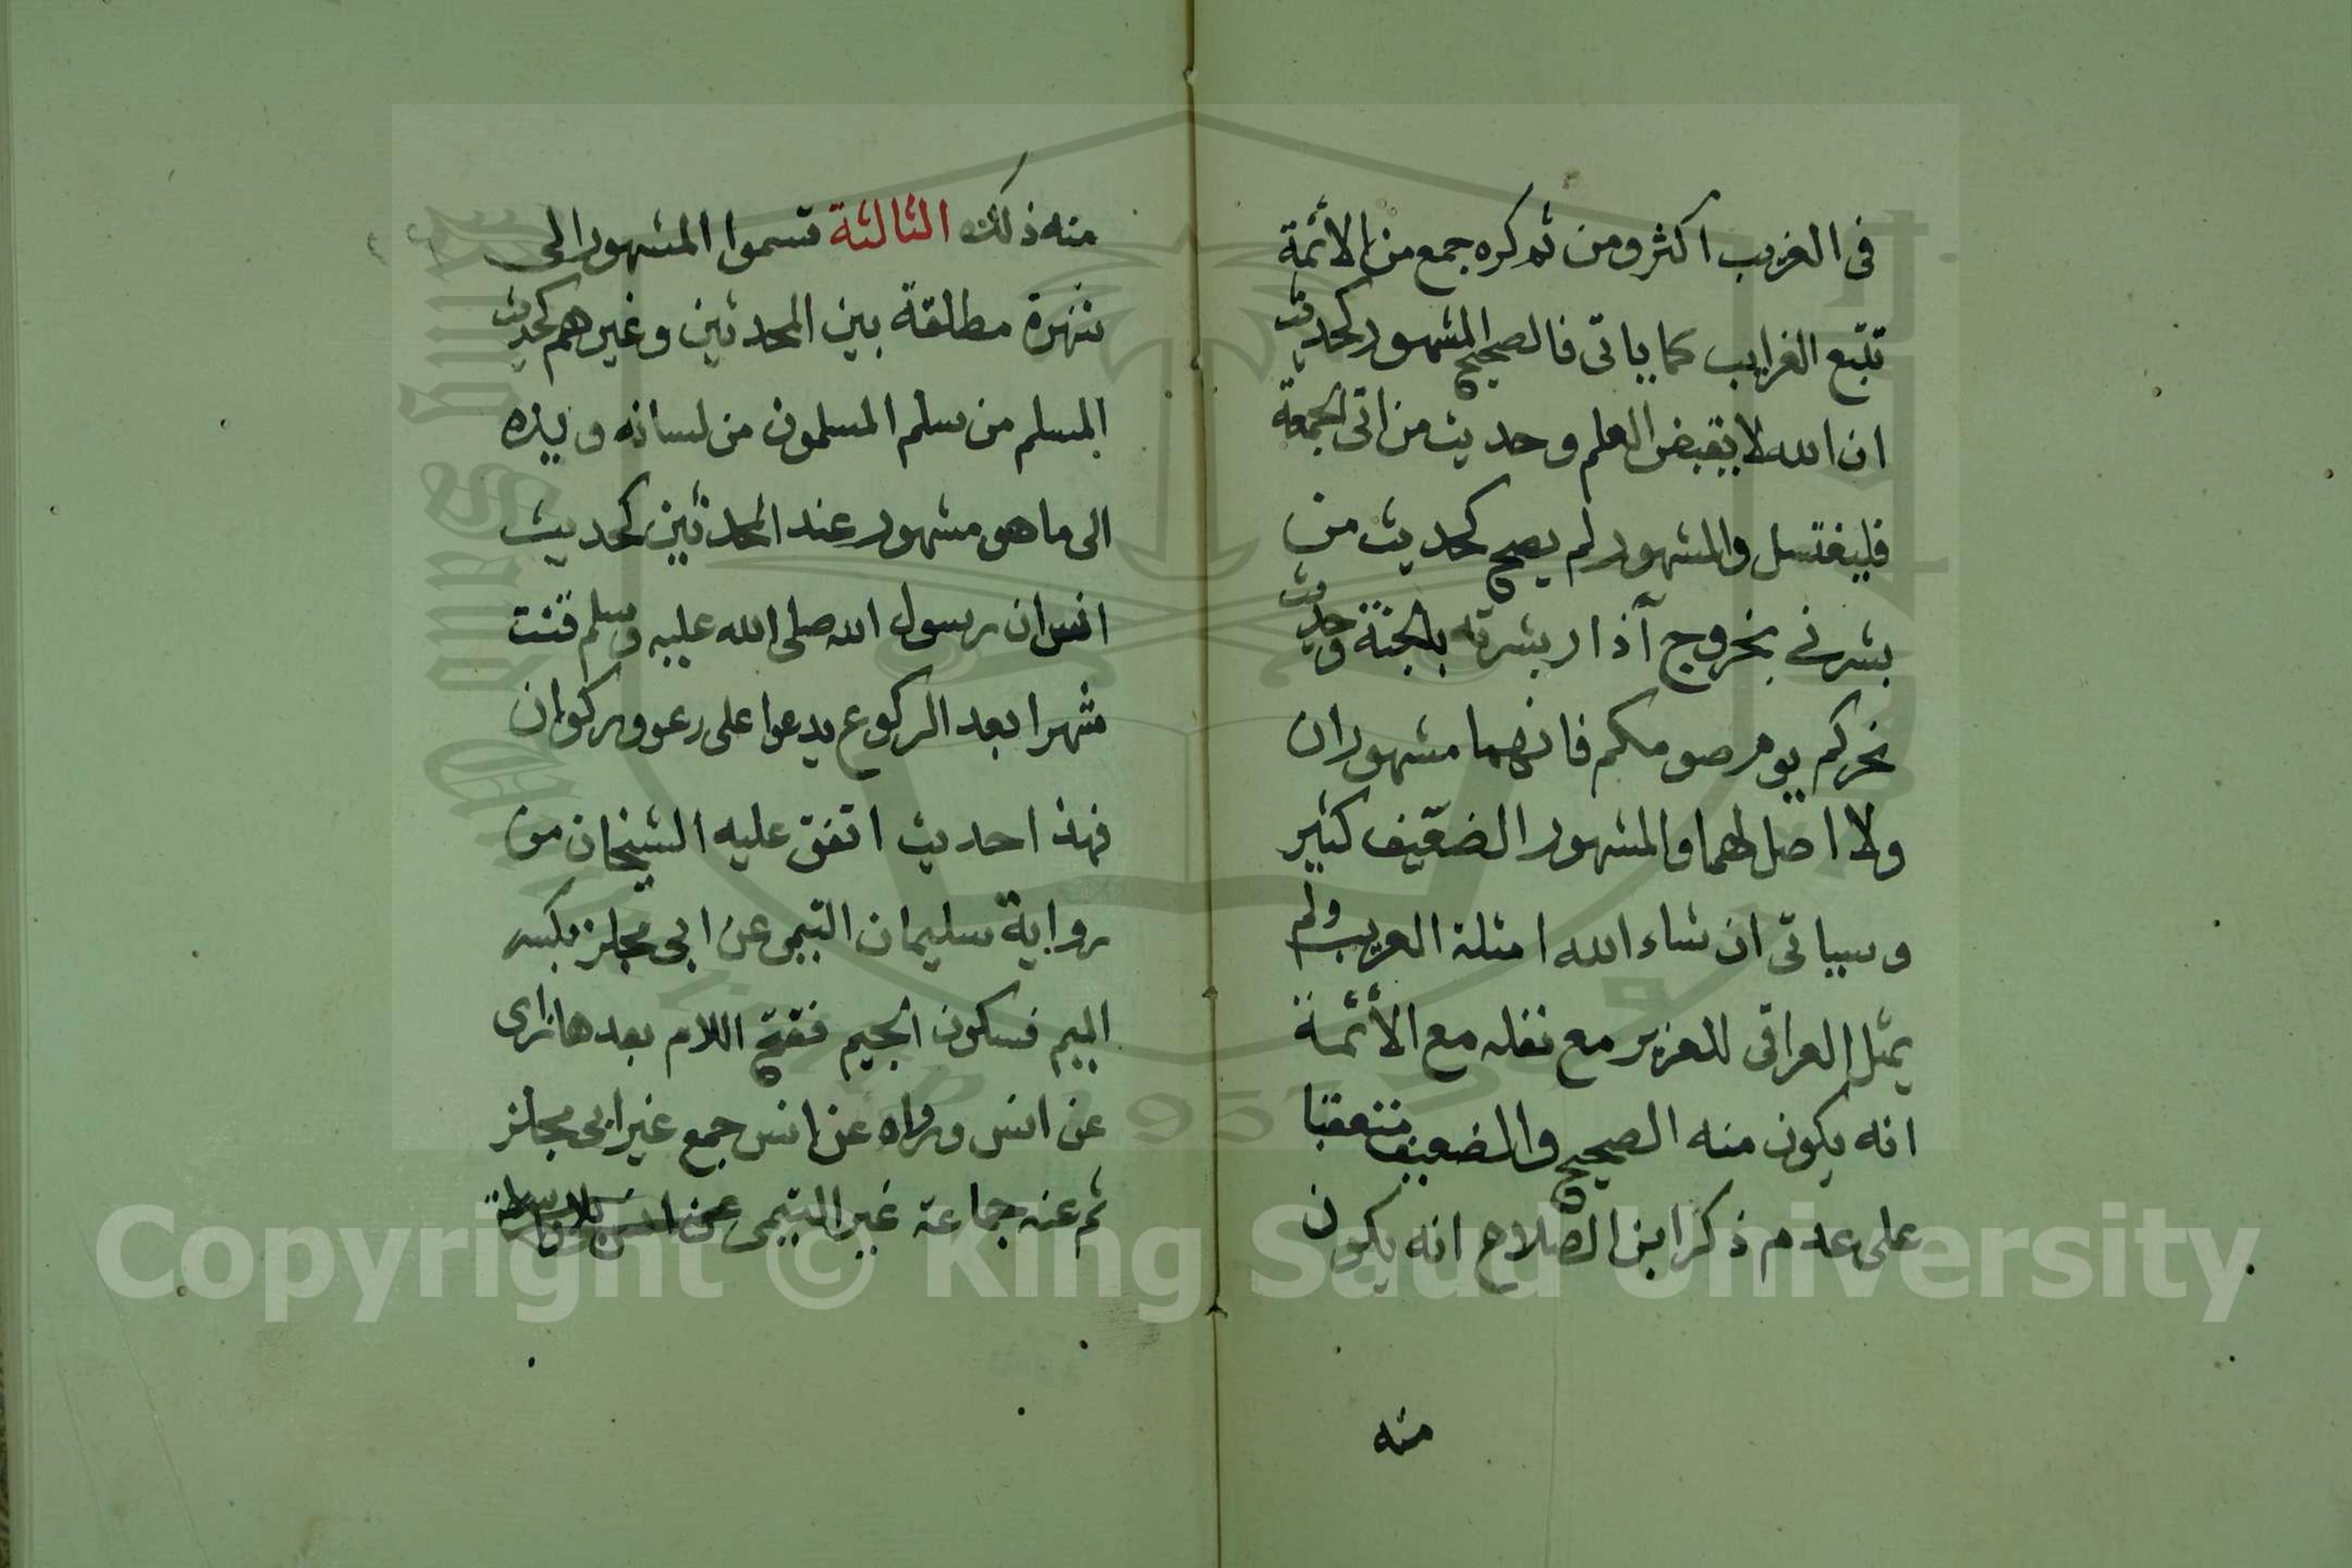 في الغريب اكثر ومن ثم كره جمع من الأئمة
تتبع الغرايب كما ياتى فالصحيح المشهور كحديث
ان الله لا يقبض العلم وحديث من اتى الجمعة
فليغتسل والمشهور لم يصح كحديث من
بشرني بخروج آذار بشرته بالجنة وحديث
نحركم يوم صومكم فانهما مشهوران
ولا اصل لهما والمشهور الضعيف كثير
وسياتى ان شاء الله امثلة الغريب ولم
يمثل العراقى للعزيز مع نقله مع الأئمة
انه يكون منه الصحيح والضعيف متعقبا
على عدم ذكر ابن الصلاح انه يكون
منه
منه ذلك الثالثة قسموا المشهور الى
شهرة مطلقة بين المحدثين وغيرهم كحديث
المسلم من سلم المسلمون من لسانه ويده
الى ما هو مشهور عند المحدثين كحديث
انس ان رسول الله صلى الله عليه وسلم قنت
شهرا بعد الركوع يدعوا على رعو وركوان
فهذا حديث اتفق عليه الشيخان من
رواية سليمان التيمى عن ابى مجلز بكسر
الميم فسكون الجيم ففتح اللام بعدها زاى
عن انس ورواه عن انس جمع غير ابى مجلز
ثم عنه جماعة غير التيمى عن انس بلا واسطة
Copyright © King Saud University